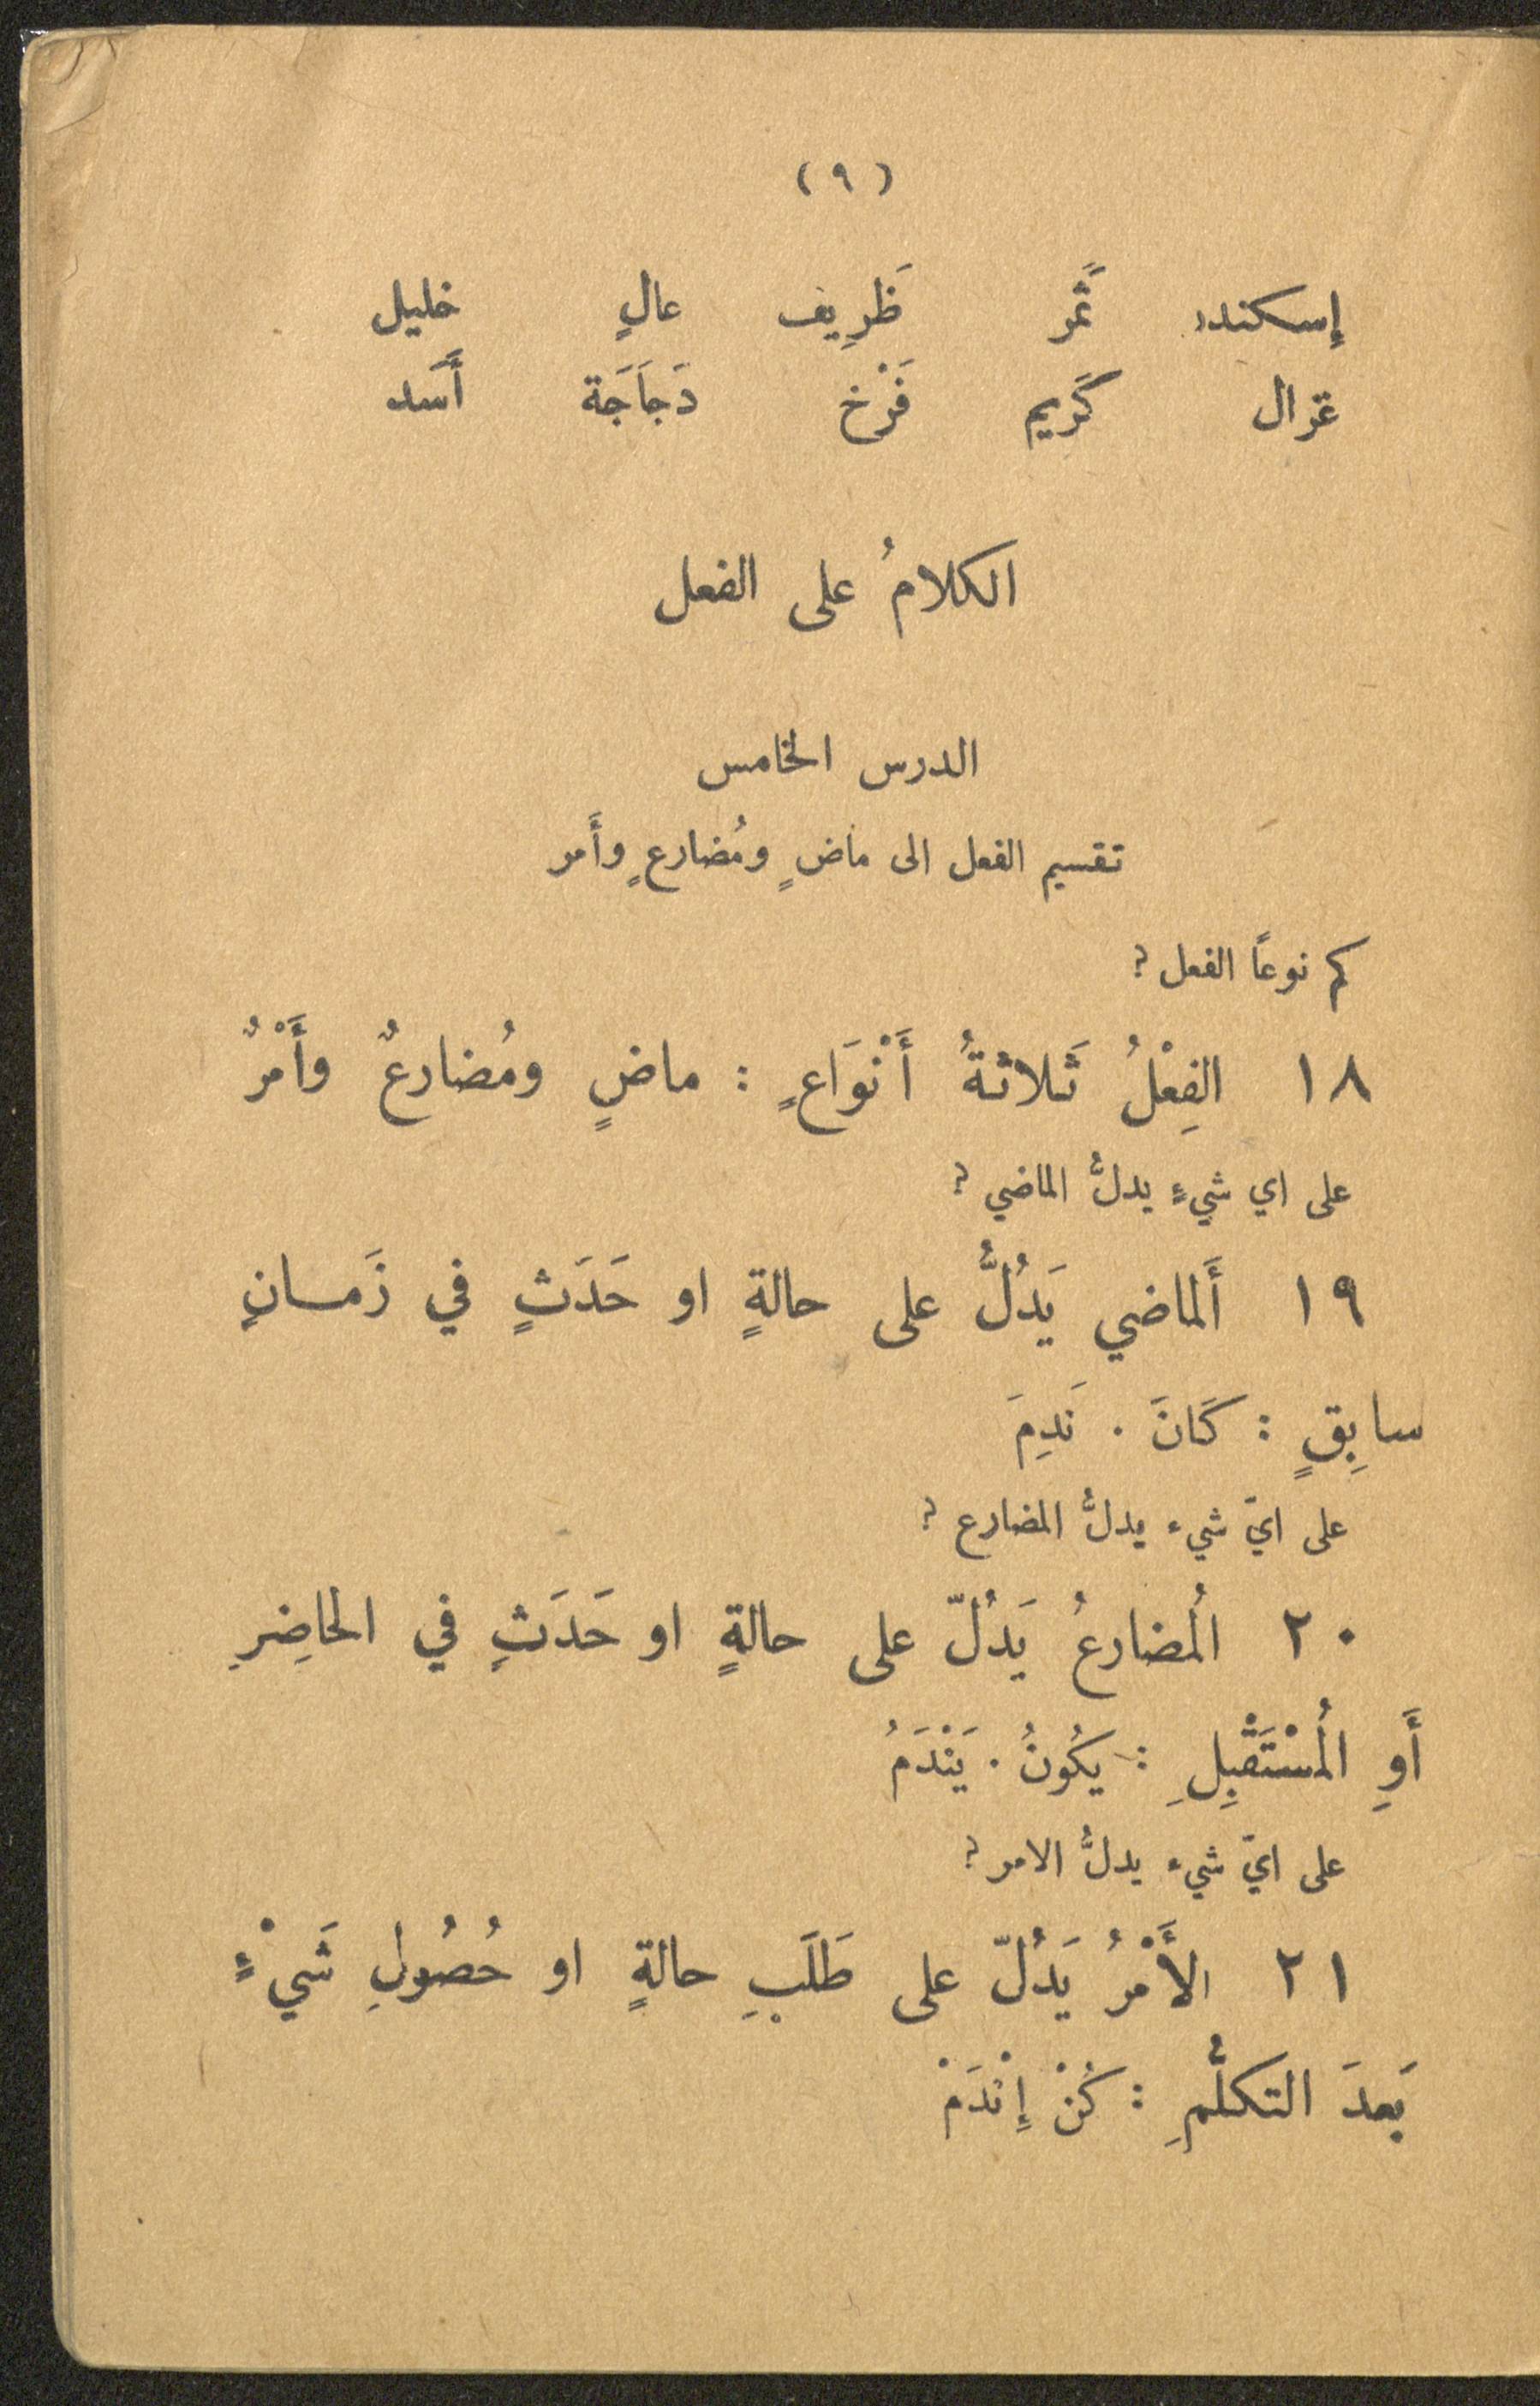 (٩)
إسكندر ثَمَر ظَرِيف عالٍ خليل
غزال كَريم فَرْخ دَجاَجَة أَسَد
الكلامُ على الفعل
الدرس الخامس
تقسيم الفعل الى ماضٍ ومُضارعٍ وأَمر
كم نوعًا الفعل ؟
١٨ الفِعْلُ ثَلاثةُ أَنْوَاعٍ : ماضٍ ومُضارعٌ وأَمْرٌ
على اي شيءٍ يدلُّ الماضي ؟
١٩ أَلماضي يَدُلُّ على حالةٍ او حَدَثٍ في زَمانٍ
سابِقٍ : كَانَ . نَدِمَ
على ايّ شيء يدلُّ المضارع ؟
٢٠ المُضارعُ يَدُلّ على حالةٍ او حَدَثٍ في الحاضِرِ
أَوِ المُسْتَقْبِلِ : يكُونُ . يَنْدَمُ
على ايّ شيء يدلُّ الامر ؟
٢١ الأَمْرُ يَدُلّ على طَلَبِ حالةٍ او حُصُولِ شَيْءٍ
بَعدَ التكلُّمِ : كُنْ إِنْدَمْ